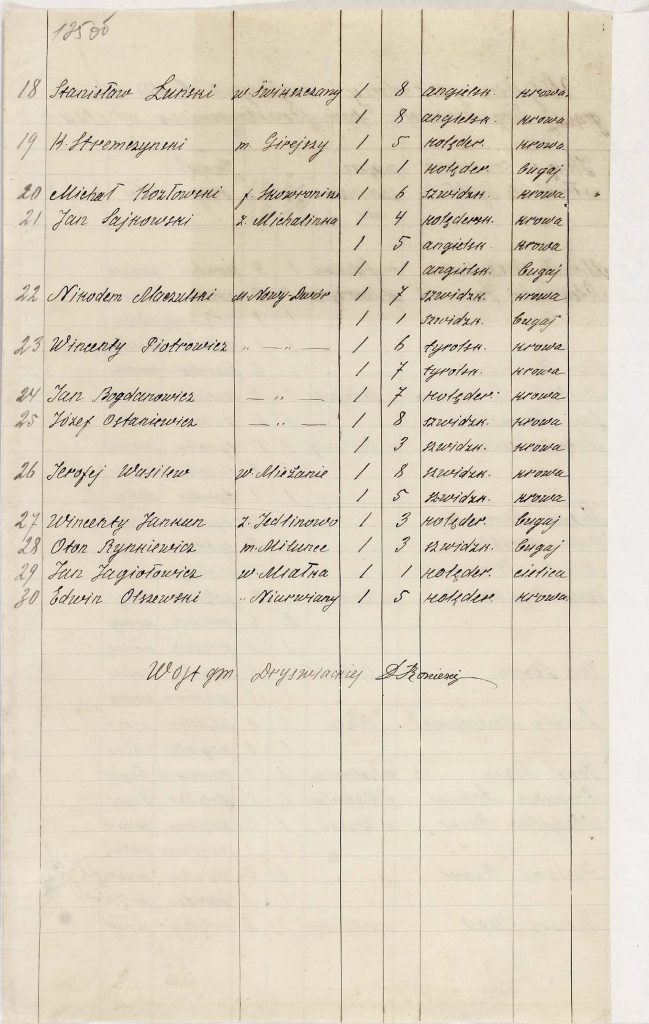 18 Stanisław Łusiski w. Świrszczany 1 8 angielsk. krowa.
1 8 angielsk. krowa
19 K. Stremczynski m. Girejczy 1 5 hołęder. krowa.
1 1 hołęder. bugaj
20 Michał Kozłowski f. Skowroniszk 1 6 szwidzk. krowa
21 Jan Sajkowski z. Michalinka 1 4 hołędersk. krowa
1 5 angielsk. krowa
1 1 angielsk. bugaj
22 Nikodem Maczulski m. Nowy-Dwór 1 7 szwidzk. krowa
1 1 szwidzk. bugaj
23 Wincenty Piotrowicz „ — „ — 1 6 tyrolsk. krowa
1 7 tyrolsk. krowa
24 Jan Bogdanowicz — „ — 1 7 hołęder. krowa
25 Józef Ostaniewicz — „ — 1 8 szwidzk. krowa
1 3 szwidzk. krowa
26 Jerofej Wasilew w. Mieżanie 1 8 szwidzk. krowa
1 5 szwidzk. krowa
27 Wincenty Jankun z. Jedlinowo 1 3 hołęder. bugaj
28 Oton Rynkiewicz m. Milunce 1 3 szwidzk. bugaj
29 Jan Jagiołowicz w. Miałka 1 1 hołęder. cielica
30 Edwin Olszewski „ Niurwiany 1 5 hołęder. krowa.
Wójt gm. Dryświackiej